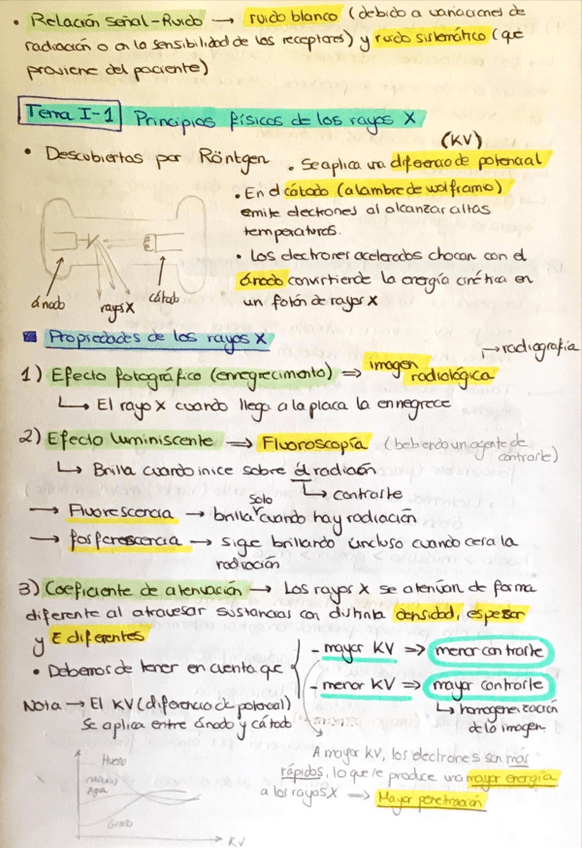 • Relación Señal-Ruido → ruido blanco (debido a variaciones de
radiación o en la sensibilidad de los receptores) y ruido sistemático (que
proviene del paciente)
Tema I-1 Principios físicos de los rayos X
• Descubiertos por Röntgen
(KV)
• Se aplica una diferencia de potencial
• En el cátodo (alambre de wolframio)
emite electrones al alcanzar altas
temperaturas.
• Los electrones acelerados chocan con el
ánodo convirtiendo la energía cinética en
un fotón de rayos X
ánodo rayos X cátodo
Propiedades de los rayos X
→ radiografía
1) Efecto fotográfico (ennegrecimiento) ⇒ imagen radiológica
↳ El rayo X cuando llega a la placa la ennegrece
2) Efecto luminiscente ⇒ Fluoroscopia (bebiendo un agente de
contraste)
↳ Brilla cuando inice sobre él radiación
↳ contraste
→ Fluorescencia → brilla solo cuando hay radiación
→ fosforescencia → sigue brillando incluso cuando cesa la
radiación
3) Coeficiente de atenuación → Los rayos X se atenúan de forma
diferente al atravesar sustancias con distinta densidad, espesor
y Z diferentes
• Debemos de tener en cuenta que
- mayor KV ⇒ menor contraste
- menor KV ⇒ mayor contraste
↳ homogenización
de la imagen
Nota → El KV (diferencia de potencial)
Se aplica entre ánodo y cátodo
A mayor KV, los electrones son más
rápidos, lo que le produce una mayor energía
a los rayos X ⇒ Mayor penetración
Hueso
Agua
Grasa
KV